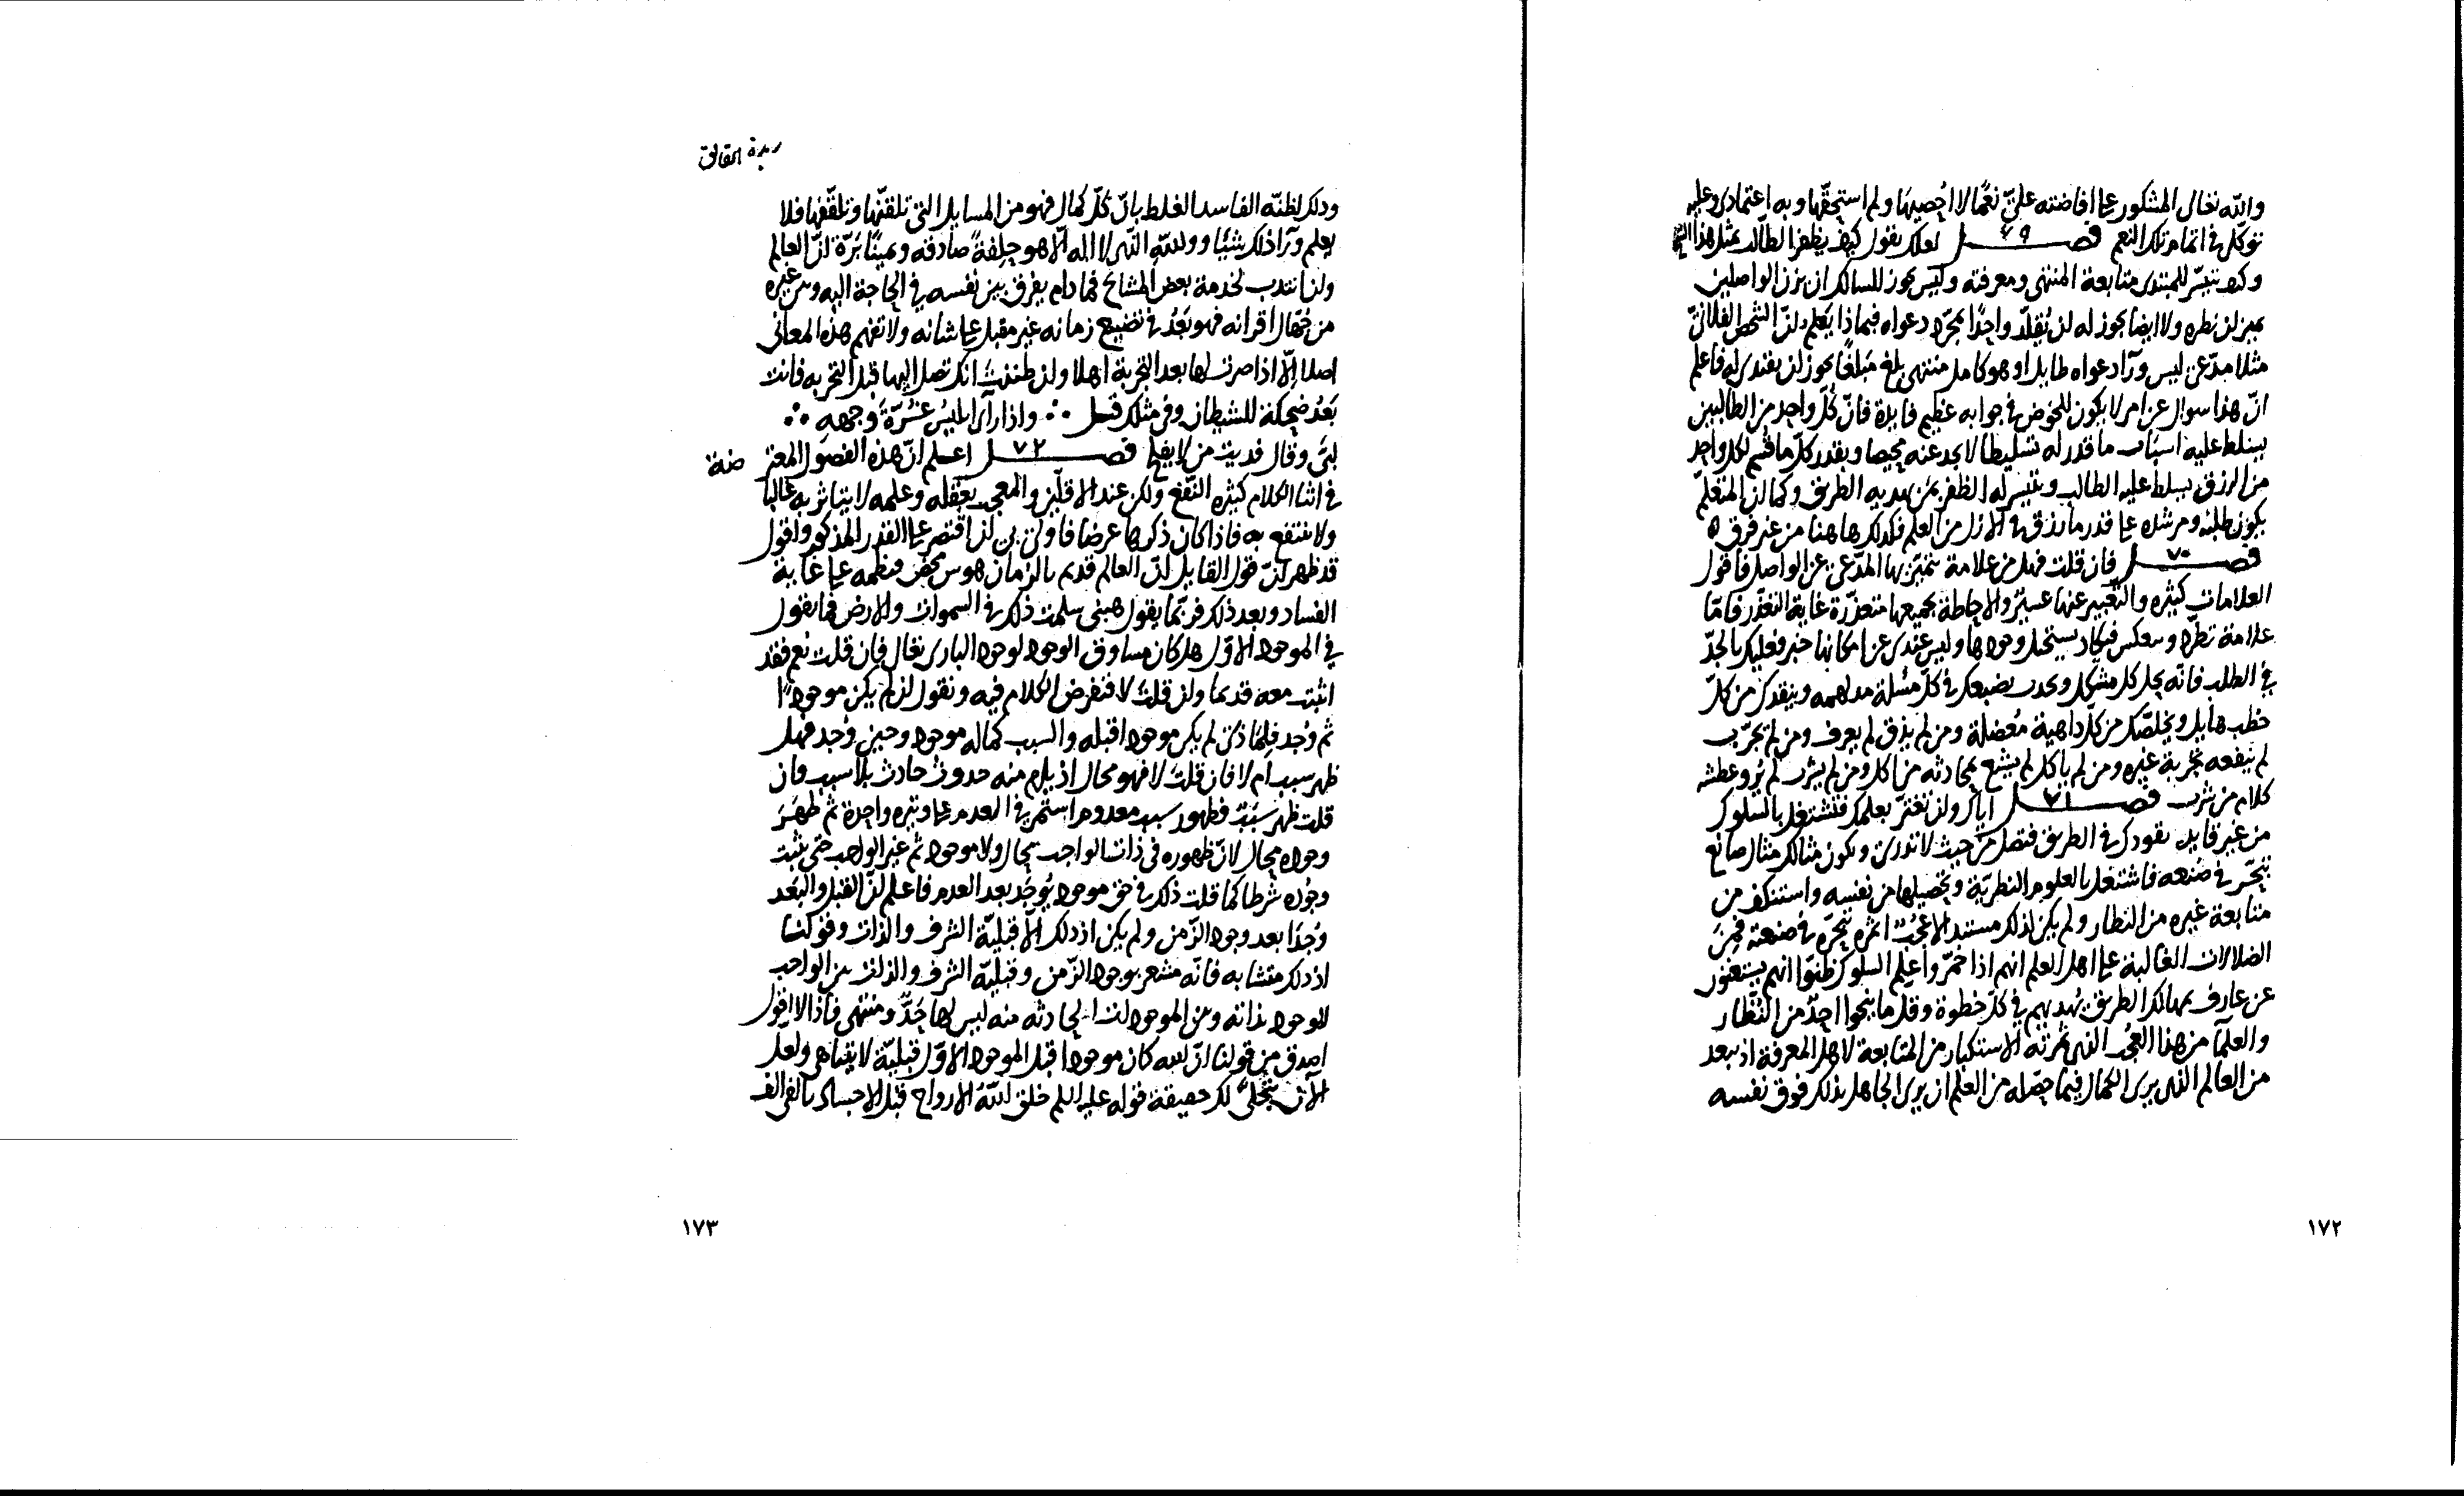 والله تعالى المشكور على افاضته علىّ نعمًا لا احصيها ولم استحقّها وبه اعتمادى وعليه
توكّلى فى اتمام تلك النعم فصــل ٦٩ لعلك تقول كيف يظفر الطالب بمثل هذا الشيخ
وكيف يتيسّر للمبتدى متابعة المنتهى ومعرفته وليس يجوز للسالك ان يزن الواصلين
بميزان نظره ولا ايضا يجوز له ان يقلّد واحدًا بمجرّد دعواه فبماذا يعلم انّ الشخص الفلانىّ
مثلا مدّعى ليس ورآء دعواه طايل او هو كامل منتهى بلغ مبلغًا يجوز ان يقتدى به فاعلم
انّ هذا سوال عن امر لا يكون للخوض فى جوابه عظيم فايدة فانّ كلّ واحد من الطالبين
يسلط عليه اسباب ما قدر له تسليطا لا يجد عنه محيصا وبقدر كلّ ما قسم لكل واحد
من الرزق يسلط عليه الطالب ويتيسر له الظفر بمن يهديه الطريق وكما ان المتعلّم
يكون طلبه ومرشده على قدر ما رزق فى الازل من العلم فكذلك هاهنا من غير فرق
فصــل ٧٠ فان قلت فهل من علامة يتميّز بها المدّعى عن الواصل فاقول
العلامات كثيره والتعبير عنها عسير والاحاطة بجميعها متعذّرة غاية التعذّر فامّا
علامة تطّرد وتنعكس فيكاد يستحيل وجودها وليس عندى عن امكانها خبر فعليك بالجدّ
فى الطلب فانّه يحل كل مشكل وياخذ بضبعك فى كلّ مسلة مدلهمه وينقذك من كلّ
خطب هايل ويخلّصك من كلّ داهية معضلة ومن لم يذق لم يعرف ومن لم يجرّب
لم ينفعه تجربة غيره ومن لم ياكل لم يشبع بمحادثه من اكل ومن لم يشرب لم يرو عطشه
كلام من شرب فصــل ٧١ اياك وان تغترّ بعلمك فتشتغل بالسلوك
من غير قايد يقودك فى الطريق فتضل من حيث لا تدرى ويكون مثالك مثال صانع
تبحّر فى صنعه فاشتغل بالعلوم النظريّة وتحصيلها من نفسه واستنكف من
متابعة غيره من النظار ولم يكن لذلك مستند الا عجب اثمره تبحّره فى صنعته فمن
الضلالات الغالبة على اهل العلم انهم اذا عزموا على السلوك ظنّوا انهم يستغنون
عن عارف بمهالك الطريق يهديهم فى كلّ خطوة وقل ما ينجوا احدٌ من النظّار
والعلمآ من هذا العجب الذى ثمرته الاستكبار من المتابعة لاهل المعرفة اذ يبعد
من العالم الذى يرى الكمال فيما حصّله من العلم ان يرى الجاهل بذلك فوق نفسه
١٧٢
زبدة الحقائق
وذلك لظنّه الفاسد الغلط بانّ كلّ كمال فهو من المسايل التى تلقنها وتلقّفها فلا
يعلم ورآ ذلك شيئا ووالله الذى لا اله الا هو حلفةً صادقه ويمينًا برّة انّ العالم
وان انتدب لخدمة بعض المشايخ فما دام يفرق بين نفسه فى الحاجة اليه وبين غيره
من جهّال اقرانه فهو بعدُ فى تضييع زمانه غير مقبل على شانه ولا تفهم هذه المعانى
اصلا الّا اذا صرت لها بعد التجربة اهلا وان ظننت انك تصل اليها قبل التجربه فانت
بعدُ ضحكة للشيطان وفى مثلك قيل ∴ واذا رآى ابليس غرّة وجهه ∴
لبّى وقال فديت من لا يفلح فصــل ٧٢ اعلم انّ هذه الفصول المعترضة
فى اثنا الكلام كثيره النّفع ولكن عند الاقلّين والمعجب بعقله وعلمه لا يتاثر به غالبا
ولا ينتفع به فاذا كان ذكرها عرضا فاولى بى ان اقتصر على القدر المذكور واقول
قد ظهر انّ قول القايل انّ العالم قديم بالزمان هوس محض ونظمه على غاية
الفساد وبعد ذلك فربّما يقول هبنى سلمت ذلك فى السموات والارض فما تقول
فى الموجود الاوّل هل كان مساوق الوجود لوجود البارى تعالى فان قلت نعم فقد
اثبت معه قديما وان قلت لا فنفرض الكلام فيه ونقول ان لم يكن موجودًا
ثم وُجد فلماذا لم يكن موجودا قبله والسبب كماله موجود وحين وُجد فهل
ظهر سبب ام لا فان قلت لا فهو محال اذ يلزم منه حدوث حادث بلا سبب وان
قلت ظهر سببٌ فظهور سبب معدوم استمر فى العدم على وتيره واحدة ثم ظهر
وجوده محال لانّ ظهوره فى ذات الواجب محال ولا موجود ثم غير الواجب حتى يثبت
وجوده شرطا كما قلت ذلك فى حق موجود يوجد بعد العدم فاعلم انّ القبل والبعد
وُجدا بعد وجود الزّمن ولم يكن اذ ذلك الّا قبليّة الشرف والذات وقولنا
اذ ذلك متشابه فانّه مشعر بوجود الزّمن وقبليّة الشرف والذات بين الواجب
لوجود بذاته وبين الموجودات الحادثه منه ليس لها حدٌّ ومنتهى فاذا لا اقول
اصدق من قولنا انّ الله كان موجودا قبل الموجود الاوّل قبليّة لا يتناهى ولعل
الآن يتجلىّ لك حقيقة قوله عليه السلم خلق الله الارواح قبل الاجساد بالفى الف
١٧٣